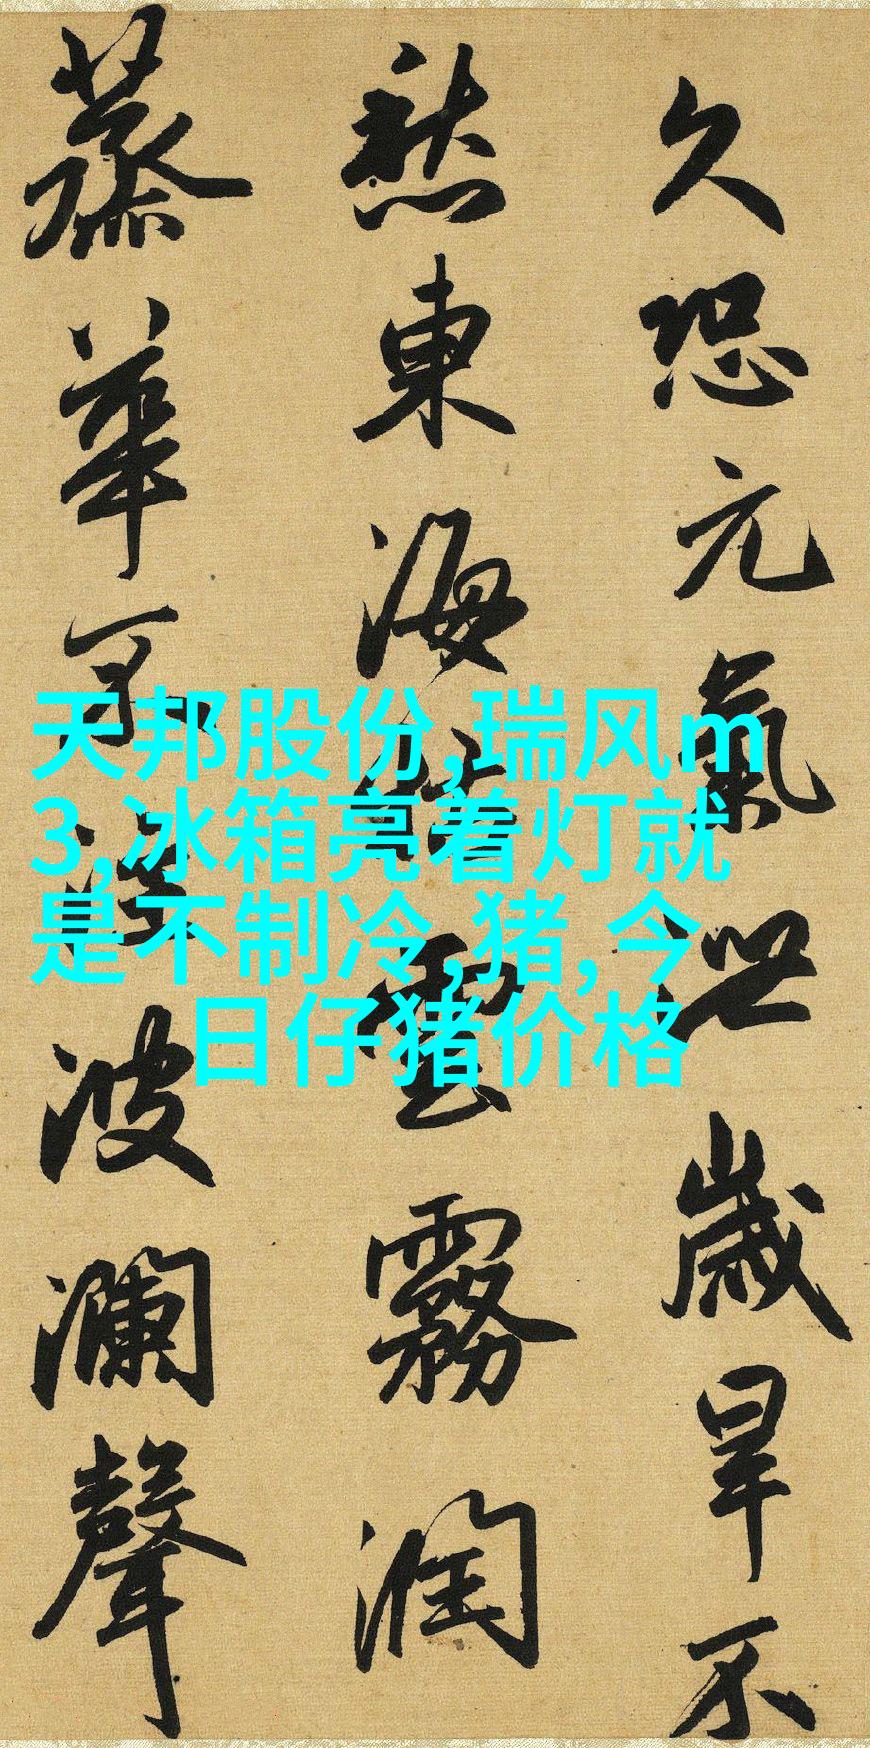 久恐元氣泄歲旱不
愁東海枯雲霧潤
蒸華不注波瀾聲
天邦股份,瑞风m
3,冰箱亮着灯就
是不制冷,猪,今
日仔猪价格